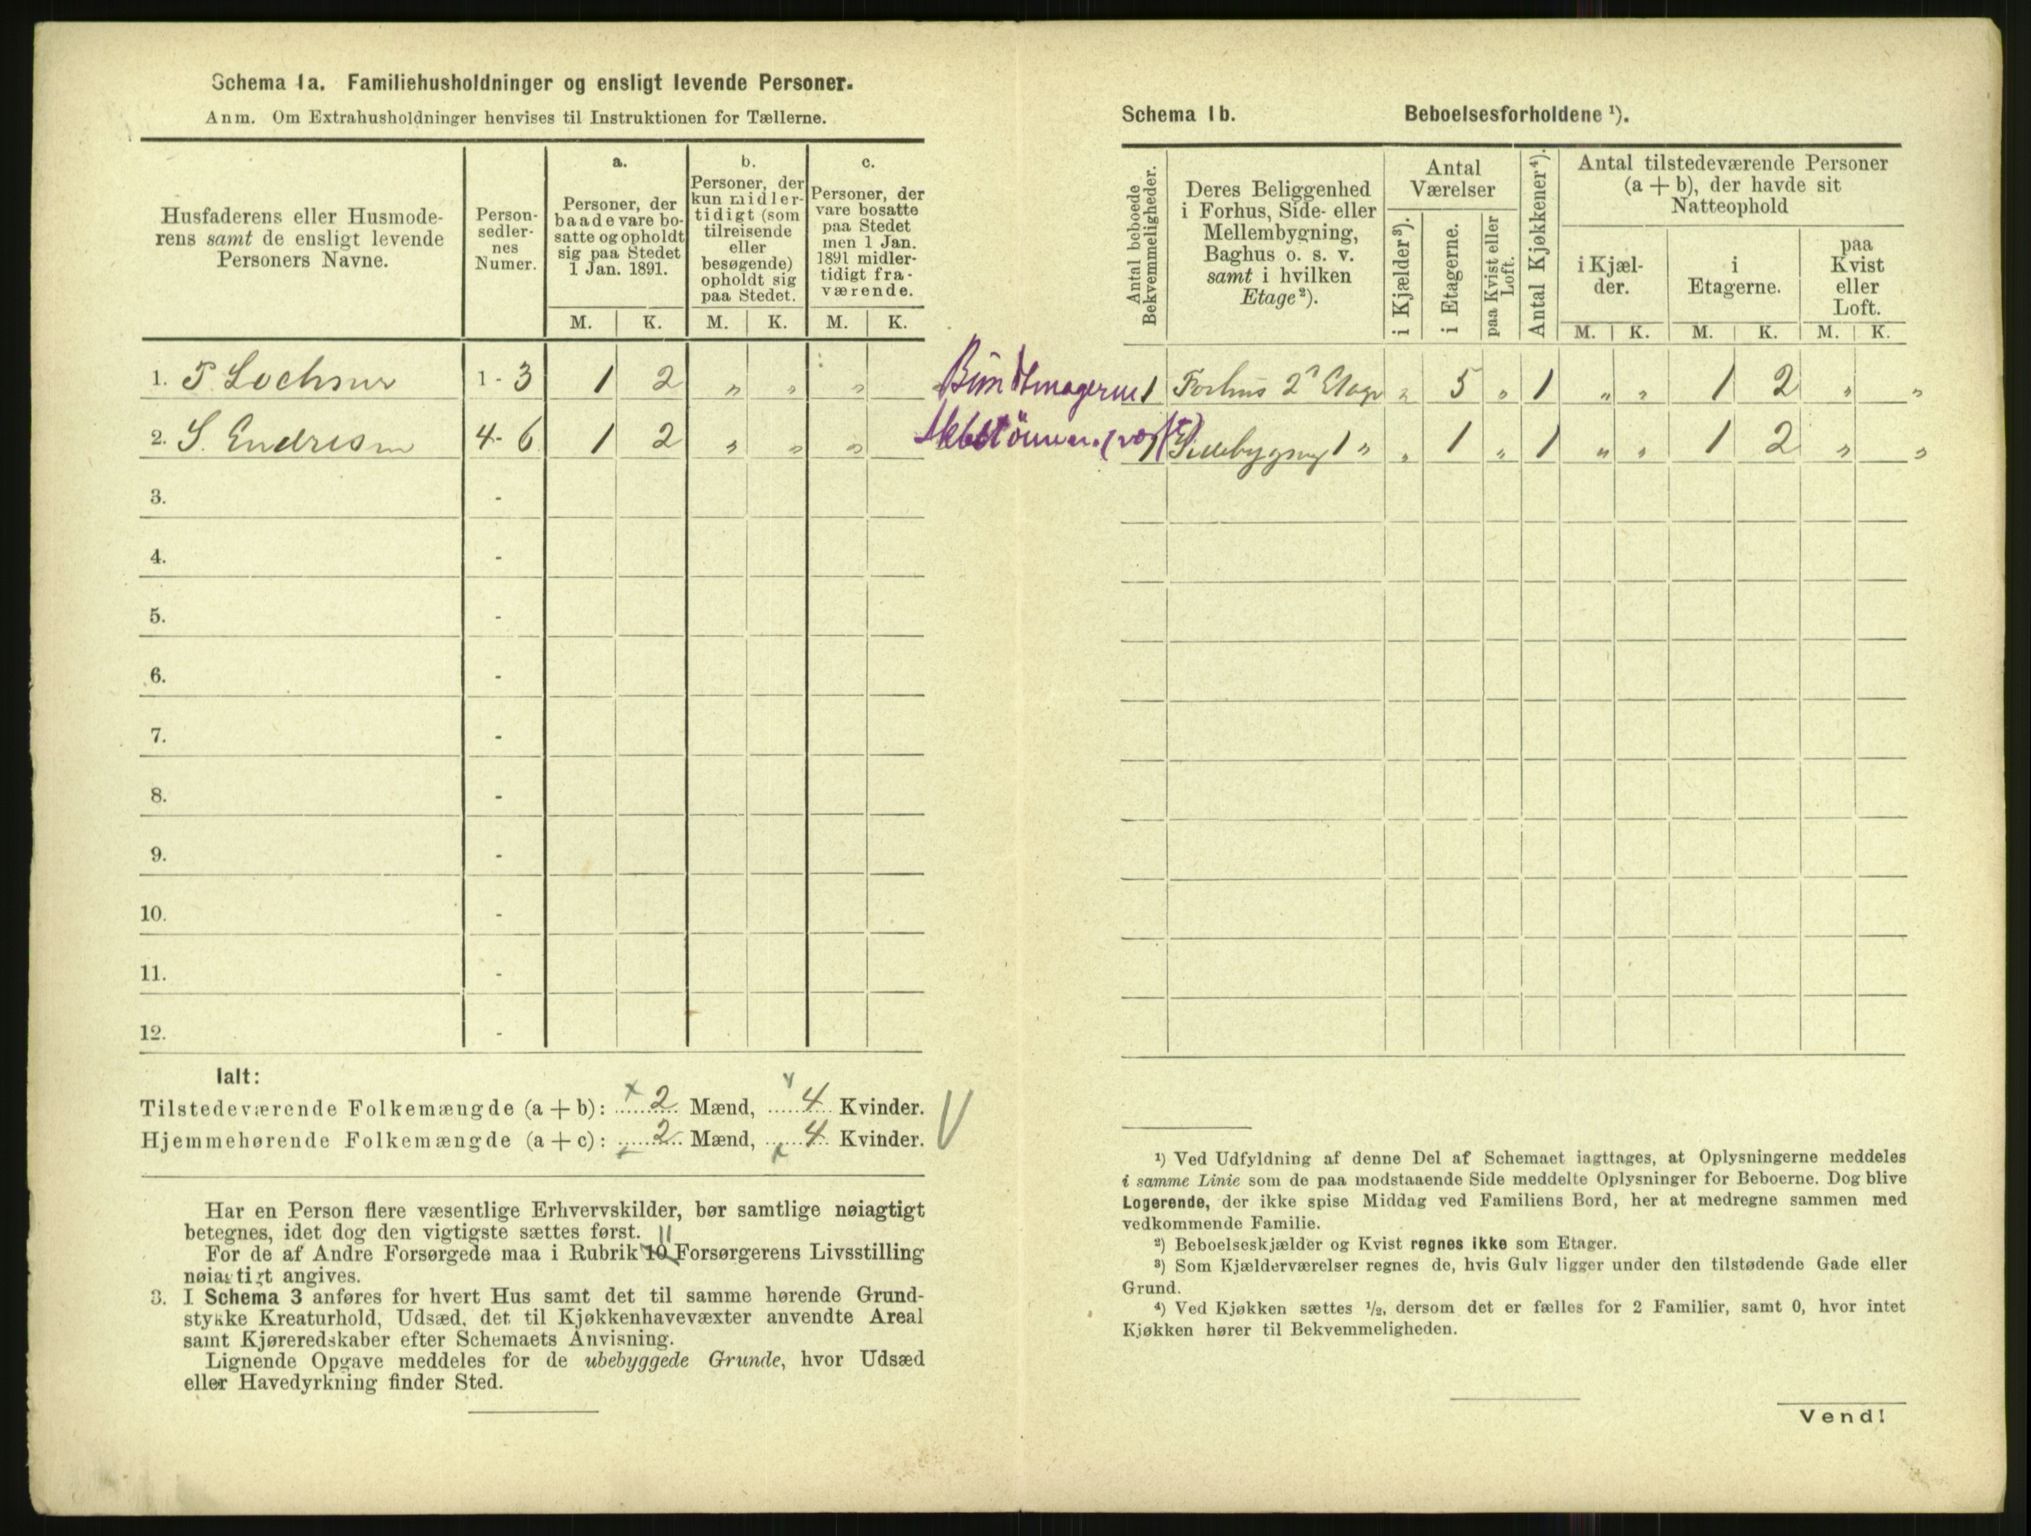 Schema 1a. Familiehusholdninger og ensligt levende Personer.
Anm. Om Extrahusholdninger henvises til Instruktionen for Tællerne.
Husfaderens eller Husmode-
rens samt de ensligt levende
Personers Navne.
Person-
sedler-
nes
Numer.
a.
Personer, der
baade vare bo-
satte og opholdt
sig paa Stedet
1 Jan. 1891.
b.
Personer, der
kun midler-
tidigt (som
tilreisende
eller
besøgende)
opholdt sig
paa Stedet.
c.
Personer, der
vare bosatte
paa Stedet
men 1 Jan.
1891 midler-
tidigt fra-
værende.
M. K. M. K. M. K.
1. P. Lochner 1 - 3 1 2 „ „ „
2. S. Endresen 4 - 6 1 2 „ „ „
3. -
4. -
5. -
6. -
7. -
8. -
9. -
10. -
11. -
12. -
Ialt:
Tilstedeværende Folkemængde (a + b): 2 Mænd, 4 Kvinder.
Hjemmehørende Folkemængde (a + c): 2 Mænd, 4 Kvinder.
Har en Person flere væsentlige Erhvervskilder, bør samtlige nøiagtigt
betegnes, idet dog den vigtigste sættes først.
11
For de af Andre Forsørgede maa i Rubrik 10 Forsørgerens Livsstilling
nøiagtigt angives.
3. I Schema 3 anføres for hvert Hus samt det til samme hørende Grund-
stykke Kreaturhold, Udsæd, det til Kjøkkenhavevæxter anvendte Areal
samt Kjøreredskaber efter Schemaets Anvisning.
Lignende Opgave meddeles for de ubebyggede Grunde, hvor Udsæd
eller Havedyrkning finder Sted.
Schema 1b. Beboelsesforholdene ¹).
Antal beboede
Bekvemmeligheder.
Deres Beliggenhed
i Forhus, Side- eller
Mellembygning,
Baghus o. s. v.
samt i hvilken
Etage ²).
Antal
Værelser
i Kjælder ³).
i Etagerne.
paa Kvist eller
Loft.
Antal Kjøkkener ⁴).
Antal tilstedeværende Personer
(a + b), der havde sit
Natteophold
i Kjæl-
der.
i
Etagerne.
paa
Kvist
eller
Loft.
M. K. M. K. M. K.
Buntmagerne 1 Forhus 2' Etage „ 5 „ 1 „ „ 1 2 „ „
1 Sidebygning 1 „ „ 1 „ 1 „ „ 1 2 „ „
¹) Ved Udfyldning af denne Del af Schemaet iagttages, at Oplysningerne meddeles
i samme Linie som de paa modstaaende Side meddelte Oplysninger for Beboerne. Dog blive
Logerende, der ikke spise Middag ved Familiens Bord, her at medregne sammen med
vedkommende Familie.
²) Beboelseskjælder og Kvist regnes ikke som Etager.
³) Som Kjælderværelser regnes de, hvis Gulv ligger under den tilstødende Gade eller
Grund.
⁴) Ved Kjøkken sættes ¹/₂, dersom det er fælles for 2 Familier, samt 0, hvor intet
Kjøkken hører til Bekvemmeligheden.
Vend!